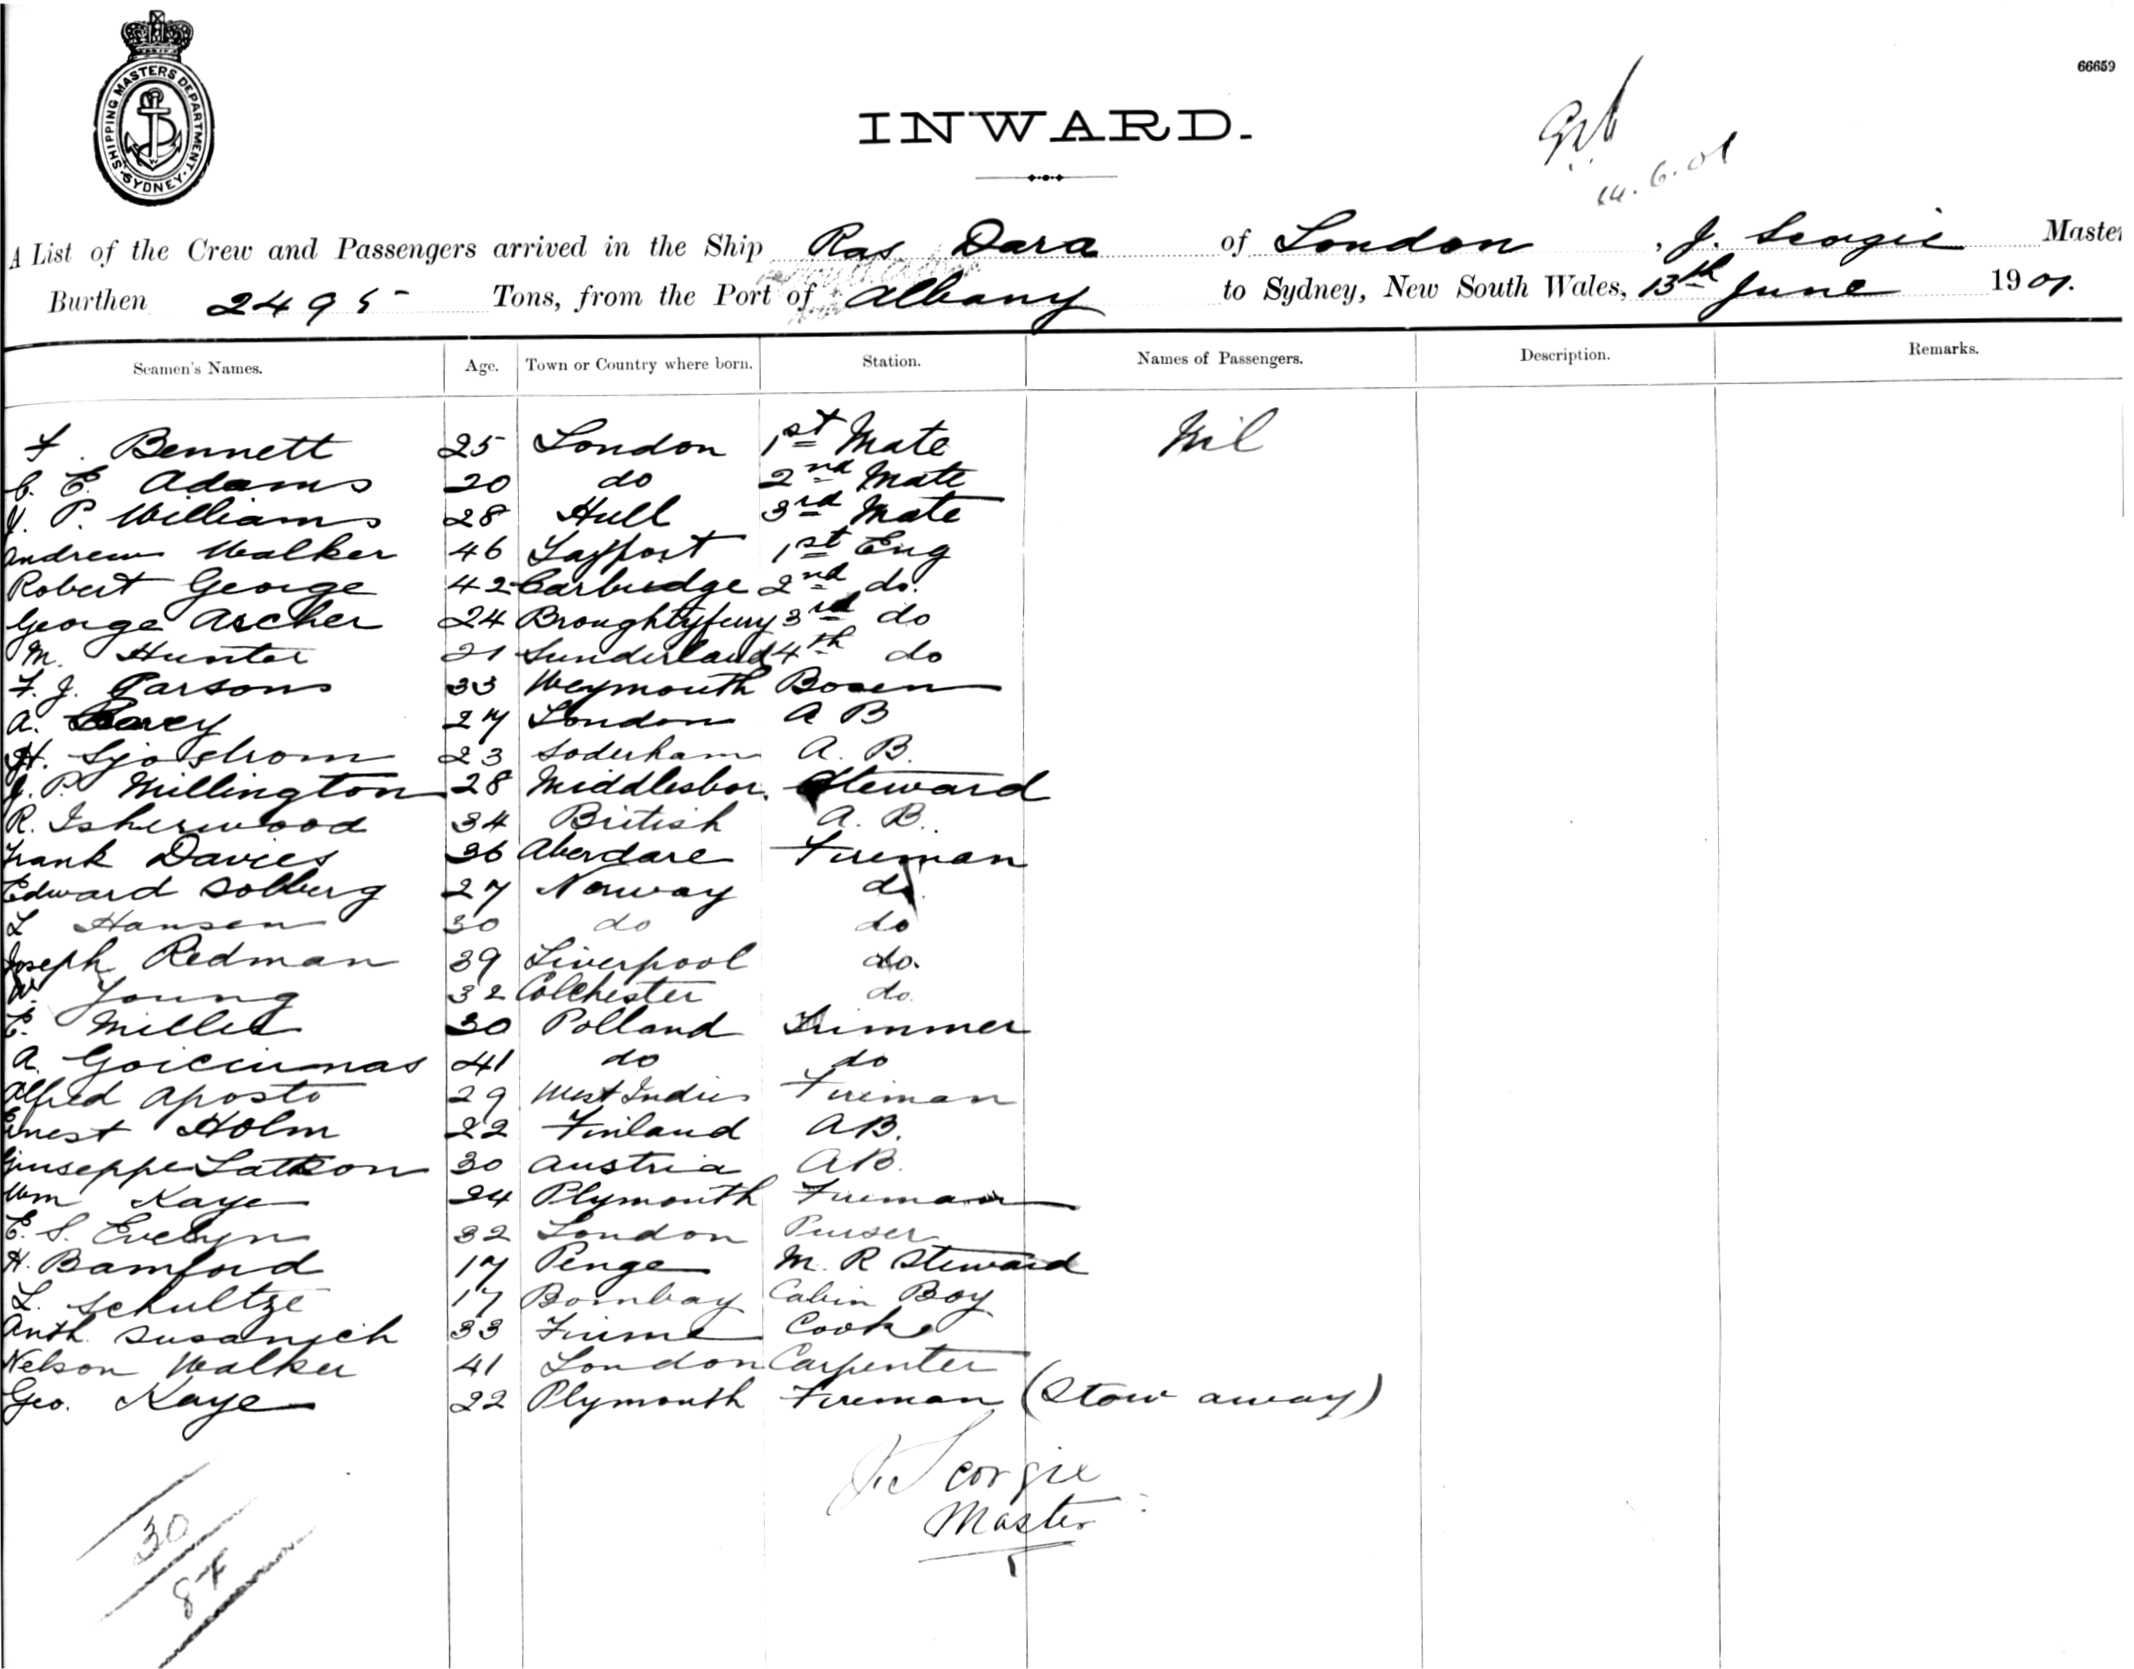 SHIPPING MASTERS DEPARTMENT. SYDNEY.
66659
INWARD.
14.6.01
A List of the Crew and Passengers arrived in the Ship Ras Dara of London, J. Scorgie Master
Burthen 2495 Tons, from the Port of Albany to Sydney, New South Wales, 13th June 1901.
Seamen's Names. Age. Town or Country where born. Station. Names of Passengers. Description. Remarks.
F. Bennett 25 London 1st Mate Nil
C. E. Adams 20 do 2nd Mate
J. P. Williams 28 Hull 3rd Mate
Andrew Walker 46 1st Eng
Robert George 42 2nd do.
George Ascher 24 Broughtyferry 3rd do
M. Hunter 21 Sunderland 4th do
F. J. Parsons 33 Weymouth Bosen
A. 27 London A B
H. Sjostrom 23 Soderham A. B.
J. P. Millington 28 Middlesbor. Steward
R. Isherwood 34 British A. B.
Frank Davies 36 Aberdare Fireman
Edward Solberg 27 Norway do.
L Hansen 30 do do
Joseph Redman 39 Liverpool do.
W. Young 32 Colchester do.
E. Miller 30 Polland Trimmer
A. 41 do do
Alfred Aposto 29 West Indies Fireman
Ernest Holm 22 Finland AB.
Giuseppe 30 Austria AB.
Wm Kaye 24 Plymouth Fireman
E. S. Evelyn 32 London Purser
H. Bamford 17 Penge M. R Steward
L. Schultze 17 Bombay Cabin Boy
Anth. Susanich 33 Fiume Cook
Nelson Walker 41 London Carpenter
Geo. Kaye 22 Plymouth Fireman (Stow away)
J. Scorgie
Master
30
87